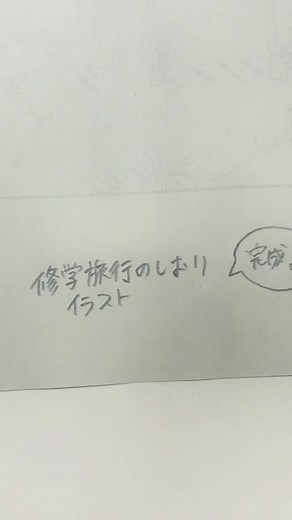 修学旅行のしおり
イラスト
完成